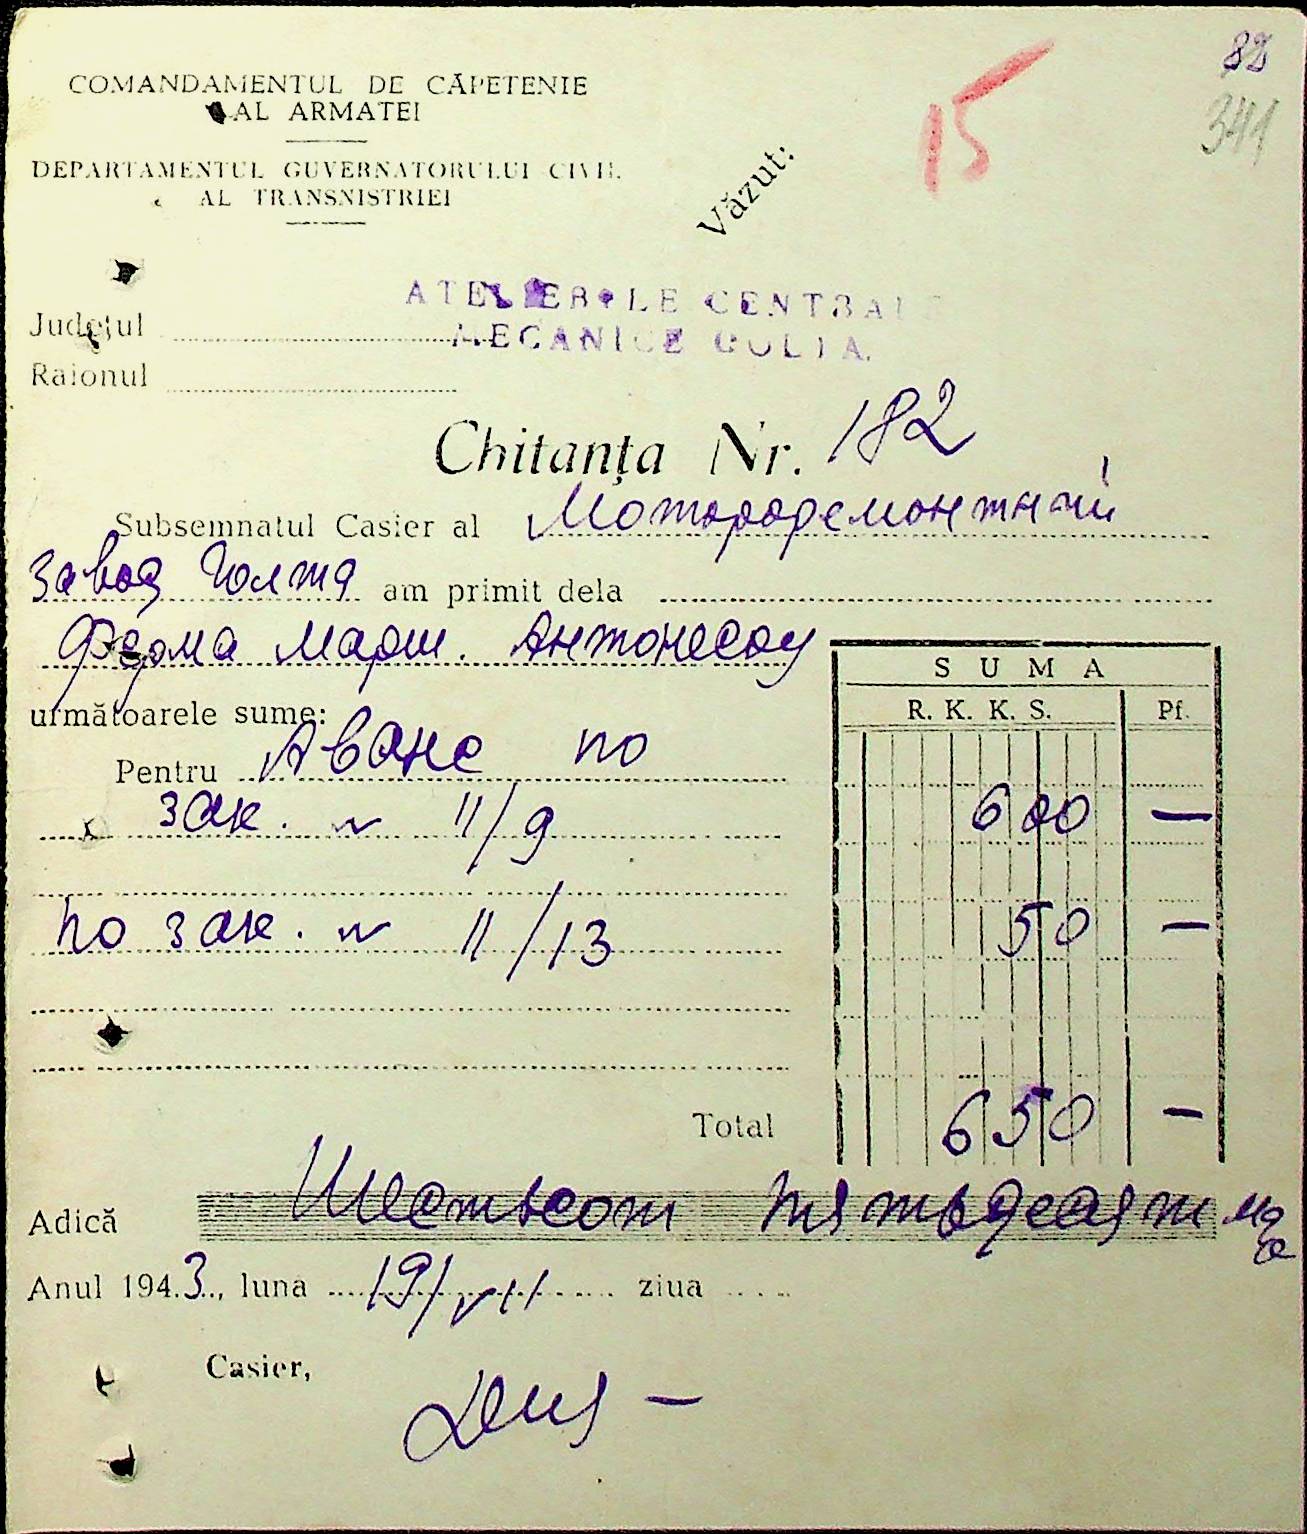 82
341
15
COMANDAMENTUL DE CĂPETENIE
AL ARMATEI
DEPARTAMENTUL GUVERNATORULUI CIVIL
AL TRANSNISTRIEI
Văzut:
ATELIERELE CENTRALE
MECANICE GOLTA.
Județul
Raionul
Chitanța Nr. 182
Subsemnatul Casier al Мотороремонтный
завод Голта am primit dela
Ферма Марш. Антонеску
următoarele sume:
SUMA
R. K. K. S. Pf.
Pentru Аванс по
зак. № 11/9 600 —
по зак. № 11/13 50 —
Total 650 —
Adică Шестьсот пятьдесят
Anul 1943, luna 19/VII ziua
Casier,